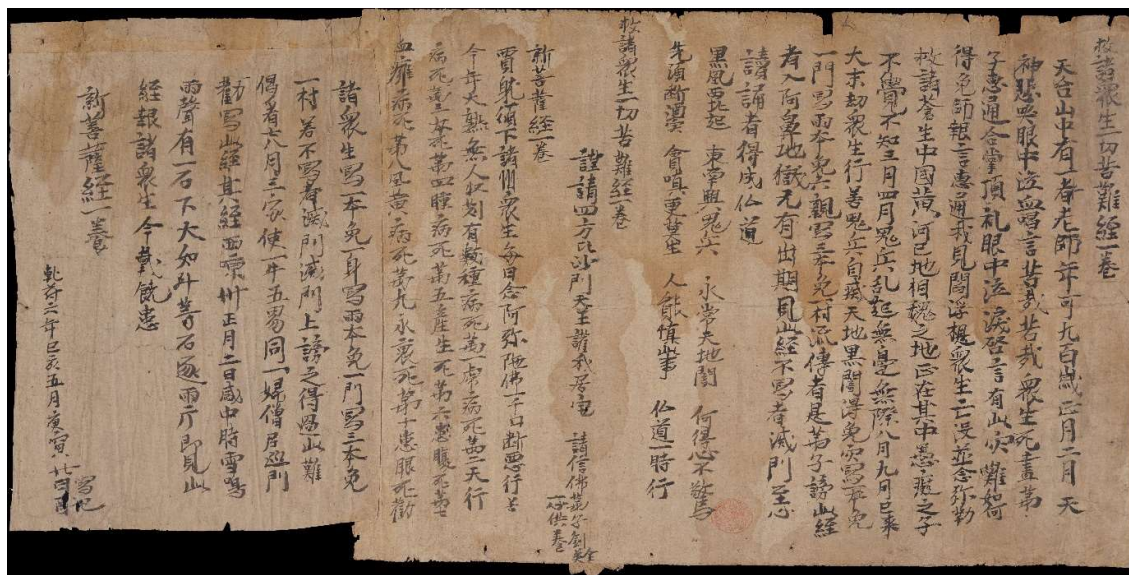 救諸衆生一切苦難經一卷
天台山中有一者老師年可九百歲正月二月天
神悲無眼中泣血唱言苦哉苦哉衆生死盡弟
子惠通合掌頂礼眼中泣淚啓言有此灾難如何
得免師報言惠通我見閻浮提衆生亡沒並念弥勒
救諸蒼生中國黃河已北相魏之地正在其中愚癡之子
不覺不知三月四月鬼兵亂起無邊無際八月九月已来
大末劫衆生行善鬼兵自滅天地黑闇得免灾寫一本免
一門寫兩本免六親寫三本免村流傳者是弟子謗此經
者入阿鼻地獄无有出期見此經不寫者滅門至心
讀誦者得成仏道
黑風西北起 東南興鬼兵 永常天地闇 何得心不驚
先須斷酒 貪嗔更莫生 人能慎此事 仏道一時行
救諸衆生一切苦難經一卷
謹請四方毗沙門天王護我居宅 請信佛弟子 一心供養
新菩薩經一卷
賈耽頒下諸州衆生每日念阿弥陀佛一千口断惡行善
今年大熟無人收刈有數種病死第一虐病死第二天行
病死第三卒死第四腫病死第五產生死第六患腹死第七
血癰病死第八風黃病死第九水痢死第十患眼死勸
諸衆生寫一本免一身寫兩本免一門寫三本免
一村若不寫者滅門滅門上謗之得過此難
但看七八月三家使一牛五男同一婦僧尼巡門
勸寫此經其經西凉州正月二日盛中時雪鳴
雨聲有一石下大如斗等石遂兩片即見此
經報諸衆生今載饒患
新菩薩經一卷
乾符六年己亥五月庚寅八廿四日寫記